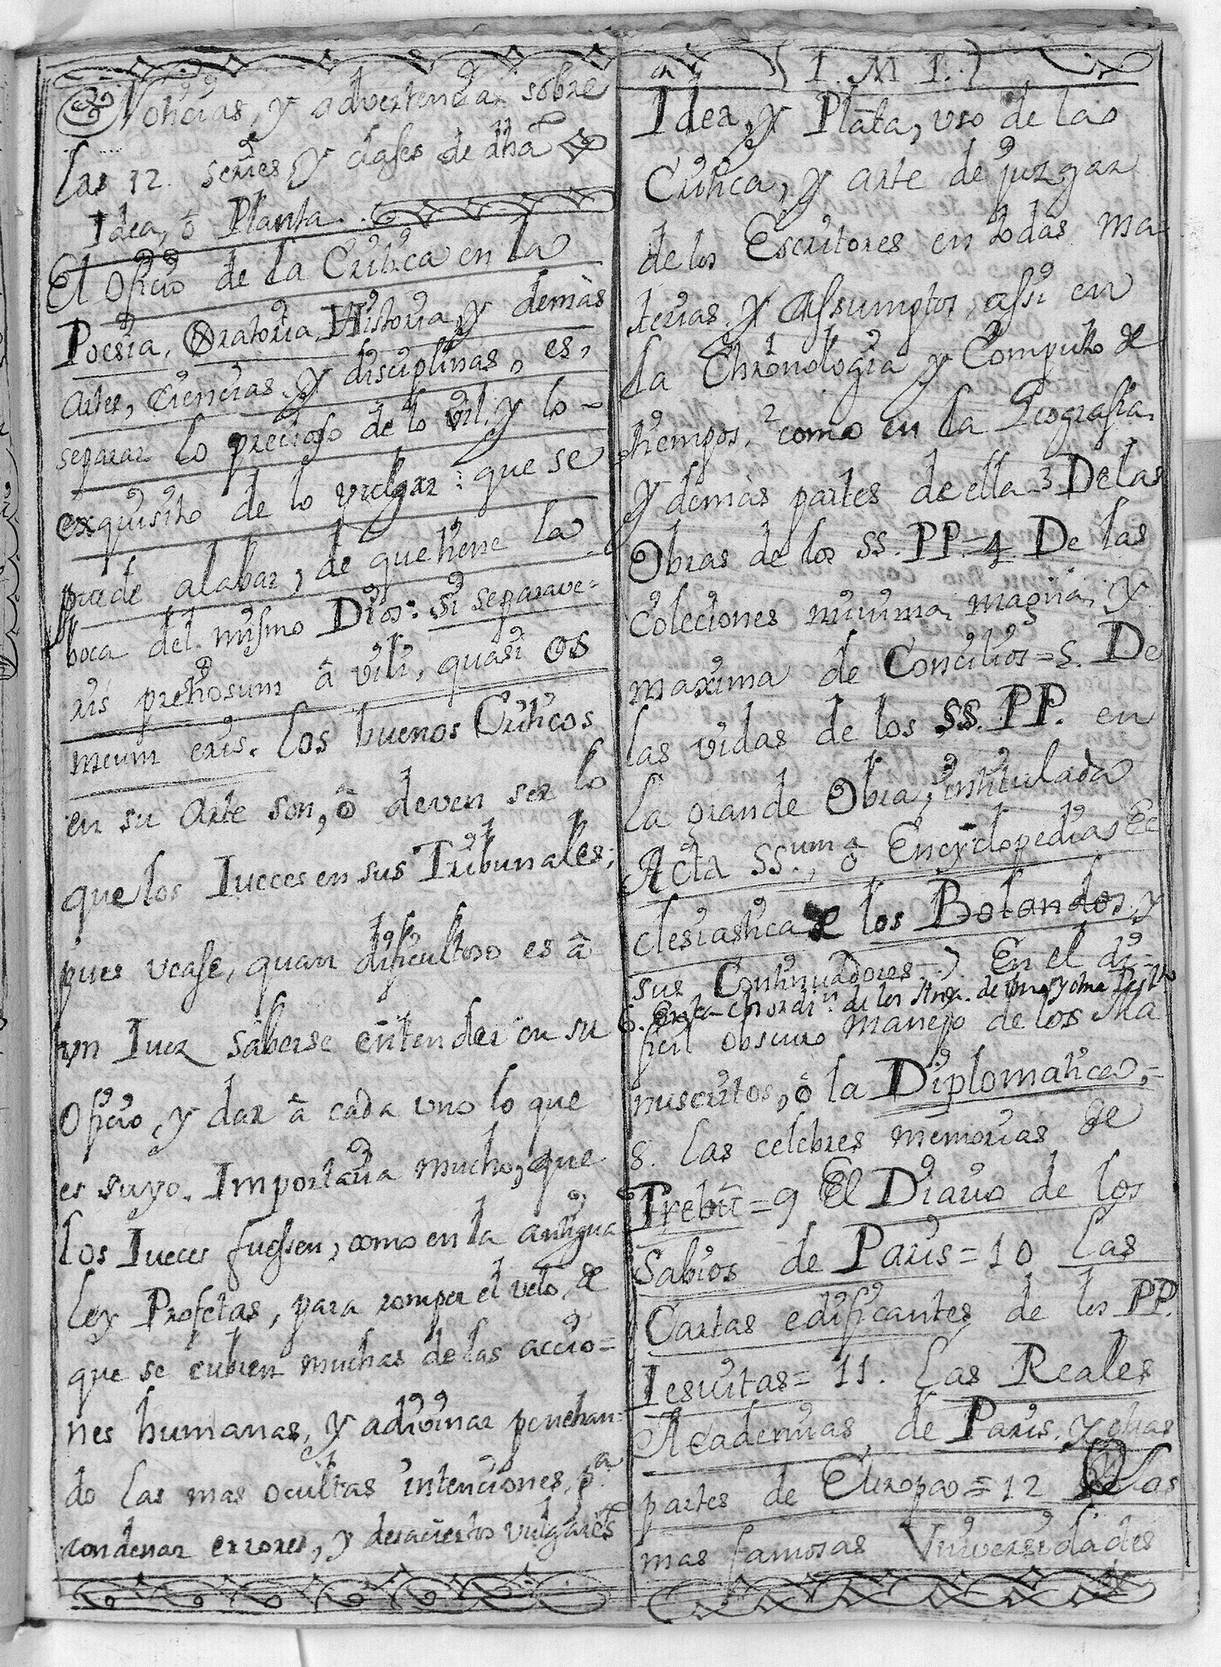 Noticias, y advertencias sobre
las 12. series, y clases de dha
Idea, ô Planta.
El Oficio de la Critica en la
Poesia, Oratoria, Historia, y demàs
Artes, Ciencias, y disciplinas, es,
separar lo precioso de lo vil, y lo
exquisito de lo vulgar: que se
puede alabar, de que tiene la
boca del mismo Dios: si separave=
ris pretiosum â vili, quasi os
meum eris. Los buenos Criticos
en su Arte son, ô deven ser lo
que los Iueces en sus Tribunales;
pues vease, quan dificultoso es â
un Iuez saberse entender en su
Oficio, y dar â cada uno lo que
es suyo. Importaria mucho, que
los Iueces fuessen, como en la antigua
Ley Profetas, para romper el velo, de
que se cubren muchas de las accio=
nes humanas, y adivinar penetran=
do las mas ocultas intenciones, pa.
condenar errores, y desaciertos vulgares
I. M. I.
Idea, y Plãta, uso de la
Critica, y arte de juzgar
de los Escritores en todas ma
terias, y assumptos, assi en
la Chronologia y Computo de
tiempos. 2 como en la Geografia.
y demàs partes de ella 3 De las
Obras de los SS. PP. = 4 De las
Coleciones minima, magna, y
maxima de Concilios = 5. De
las vidas de los SS. PP. en
la grande Obra, intitulada
Acta SSum., ô Encyclopedias Ec
clesiastica de los Bolandos, y
sus Continuadores. 7. En el di=
6. En la de los de uno y otro Testto
ficil obscuro manejo de los Ma
nuscritos, ô la Diplomatica, =
8. Las celebres memorias de
Trebū = 9 El Diario de los
Sabios de Paris = 10 Las
Cartas edificantes de los PP.
Iesuitas = 11. Las Reales
Academias, de Paris, y otras
partes de Europa = 12 De las
mas famosas Universidades